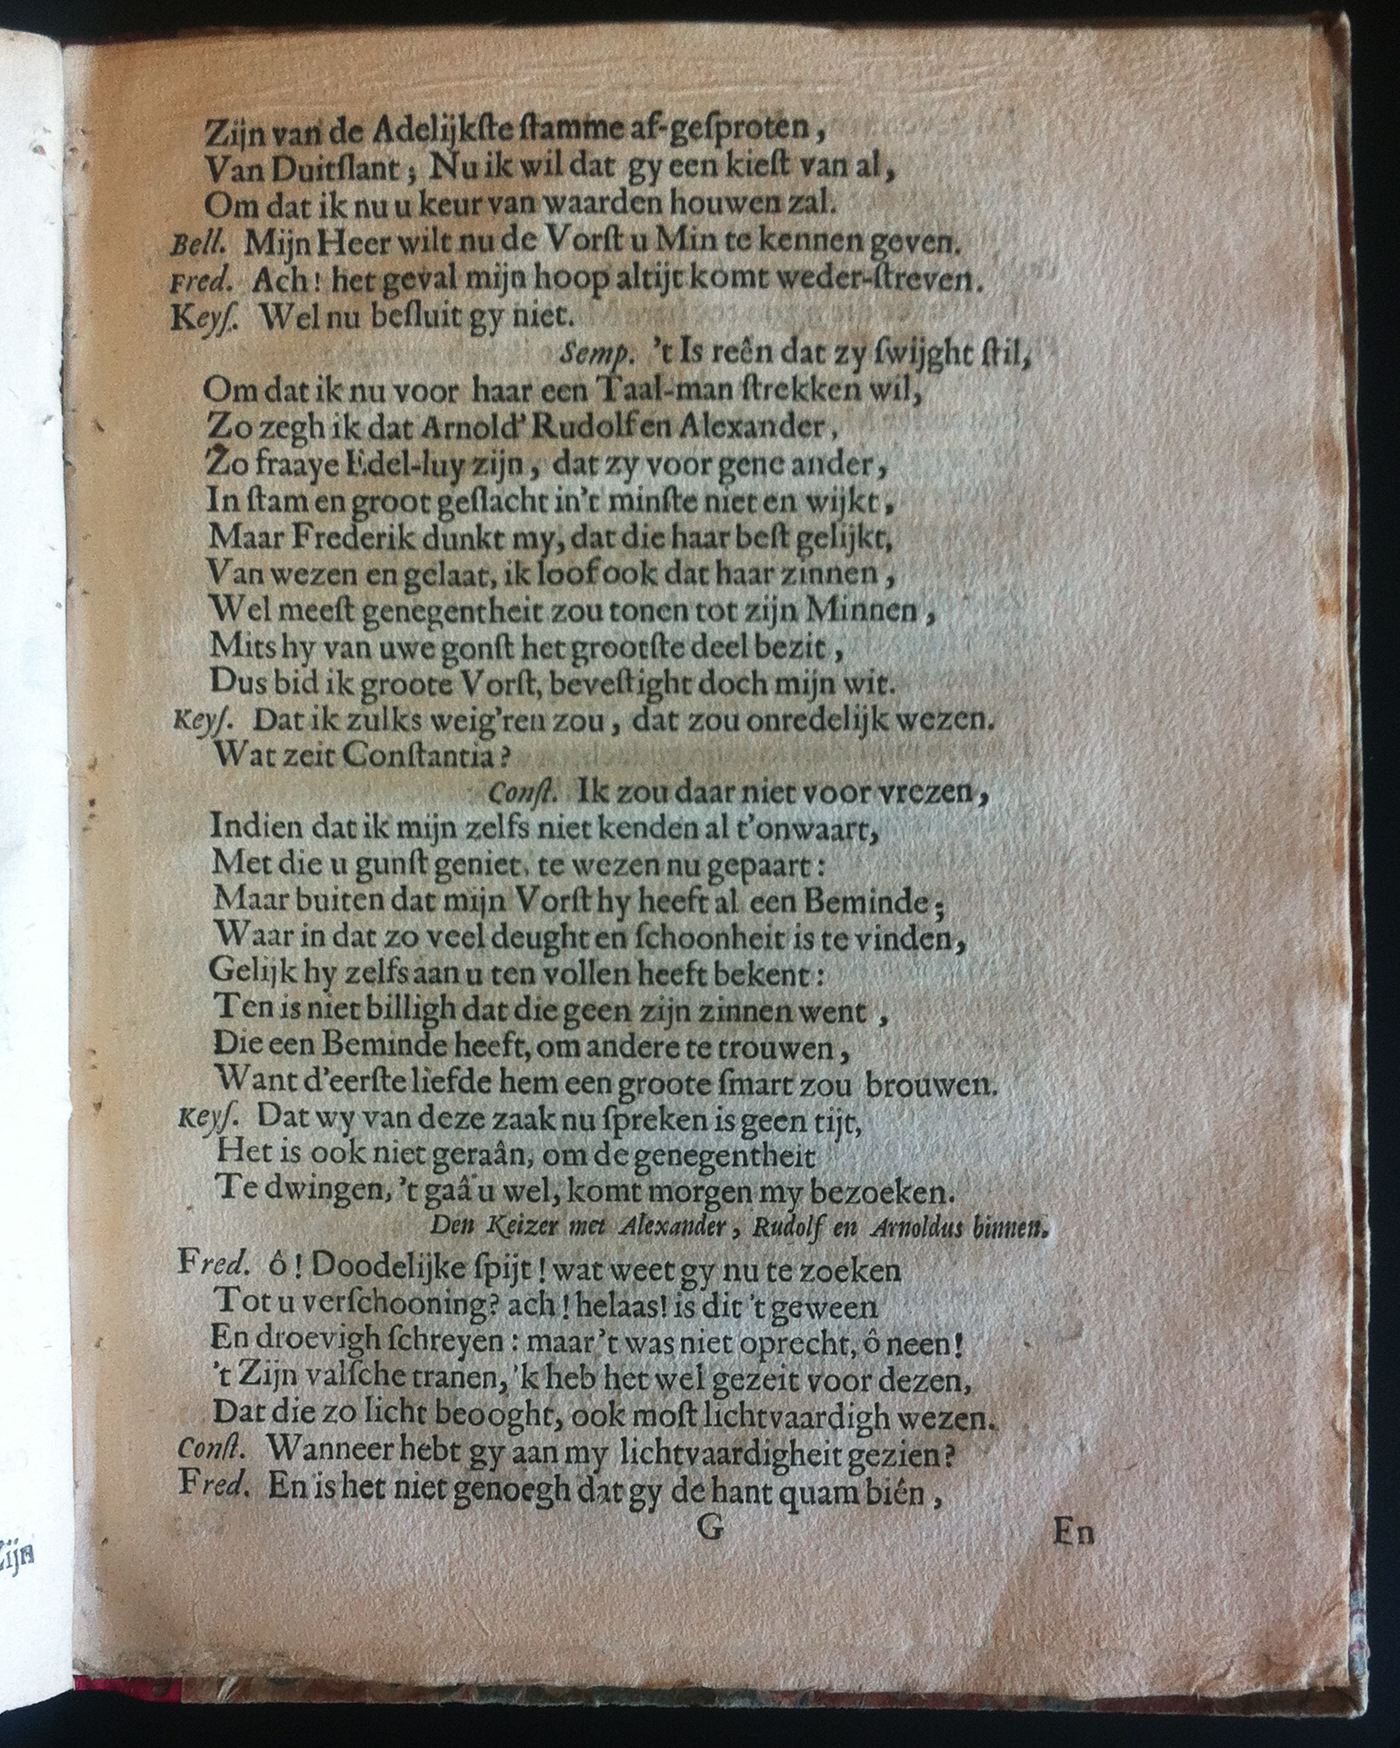 Zijn van de Adelijkſte ſtamme af-geſproten,
Van Duitſlant; Nu ik wil dat gy een kieſt van al,
Om dat ik nu u keur van waarden houwen zal.
Bell. Mijn Heer wilt nu de Vorſt u Min te kennen geven.
Fred. Ach! het geval mijn hoop altijt komt weder-ſtreven.
Keyſ. Wel nu beſluit gy niet.
Semp. 't Is reên dat zy ſwijght ſtil,
Om dat ik nu voor haar een Taal-man ſtrekken wil,
Zo zegh ik dat Arnold' Rudolf en Alexander,
Zo fraaye Edel-luy zijn, dat zy voor gene ander,
In ſtam en groot geſlacht in't minſte niet en wijkt,
Maar Frederik dunkt my, dat die haar beſt gelijkt,
Van wezen en gelaat, ik loof ook dat haar zinnen,
Wel meeſt genegentheit zou tonen tot zijn Minnen,
Mits hy van uwe gonſt het grootſte deel bezit,
Dus bid ik groote Vorſt, beveſtight doch mijn wit.
Keyſ. Dat ik zulks weig'ren zou, dat zou onredelijk wezen.
Wat zeit Conſtantia?
Conſt. Ik zou daar niet voor vrezen,
Indien dat ik mijn zelfs niet kenden al t'onwaart,
Met die u gunſt geniet, te wezen nu gepaart:
Maar buiten dat mijn Vorſt hy heeft al een Beminde;
Waar in dat zo veel deught en ſchoonheit is te vinden,
Gelijk hy zelfs aan u ten vollen heeft bekent:
Ten is niet billigh dat die geen zijn zinnen went,
Die een Beminde heeft, om andere te trouwen,
Want d'eerſte liefde hem een groote ſmart zou brouwen.
Keyſ. Dat wy van deze zaak nu ſpreken is geen tijt,
Het is ook niet geraân, om de genegentheit
Te dwingen, 't gaâ u wel, komt morgen my bezoeken.
Den Keizer met Alexander, Rudolf en Arnoldus binnen.
Fred. ô! Doodelijke ſpijt! wat weet gy nu te zoeken
Tot u verſchooning? ach! helaas! is dit 't geween
En droevigh ſchreyen: maar 't was niet oprecht, ô neen!
't Zijn valſche tranen, 'k heb het wel gezeit voor dezen,
Dat die zo licht beooght, ook moſt lichtvaardigh wezen.
Conſt. Wanneer hebt gy aan my lichtvaardigheit gezien?
Fred. En is het niet genoegh dat gy de hant quam biên,
G
En
Zijn